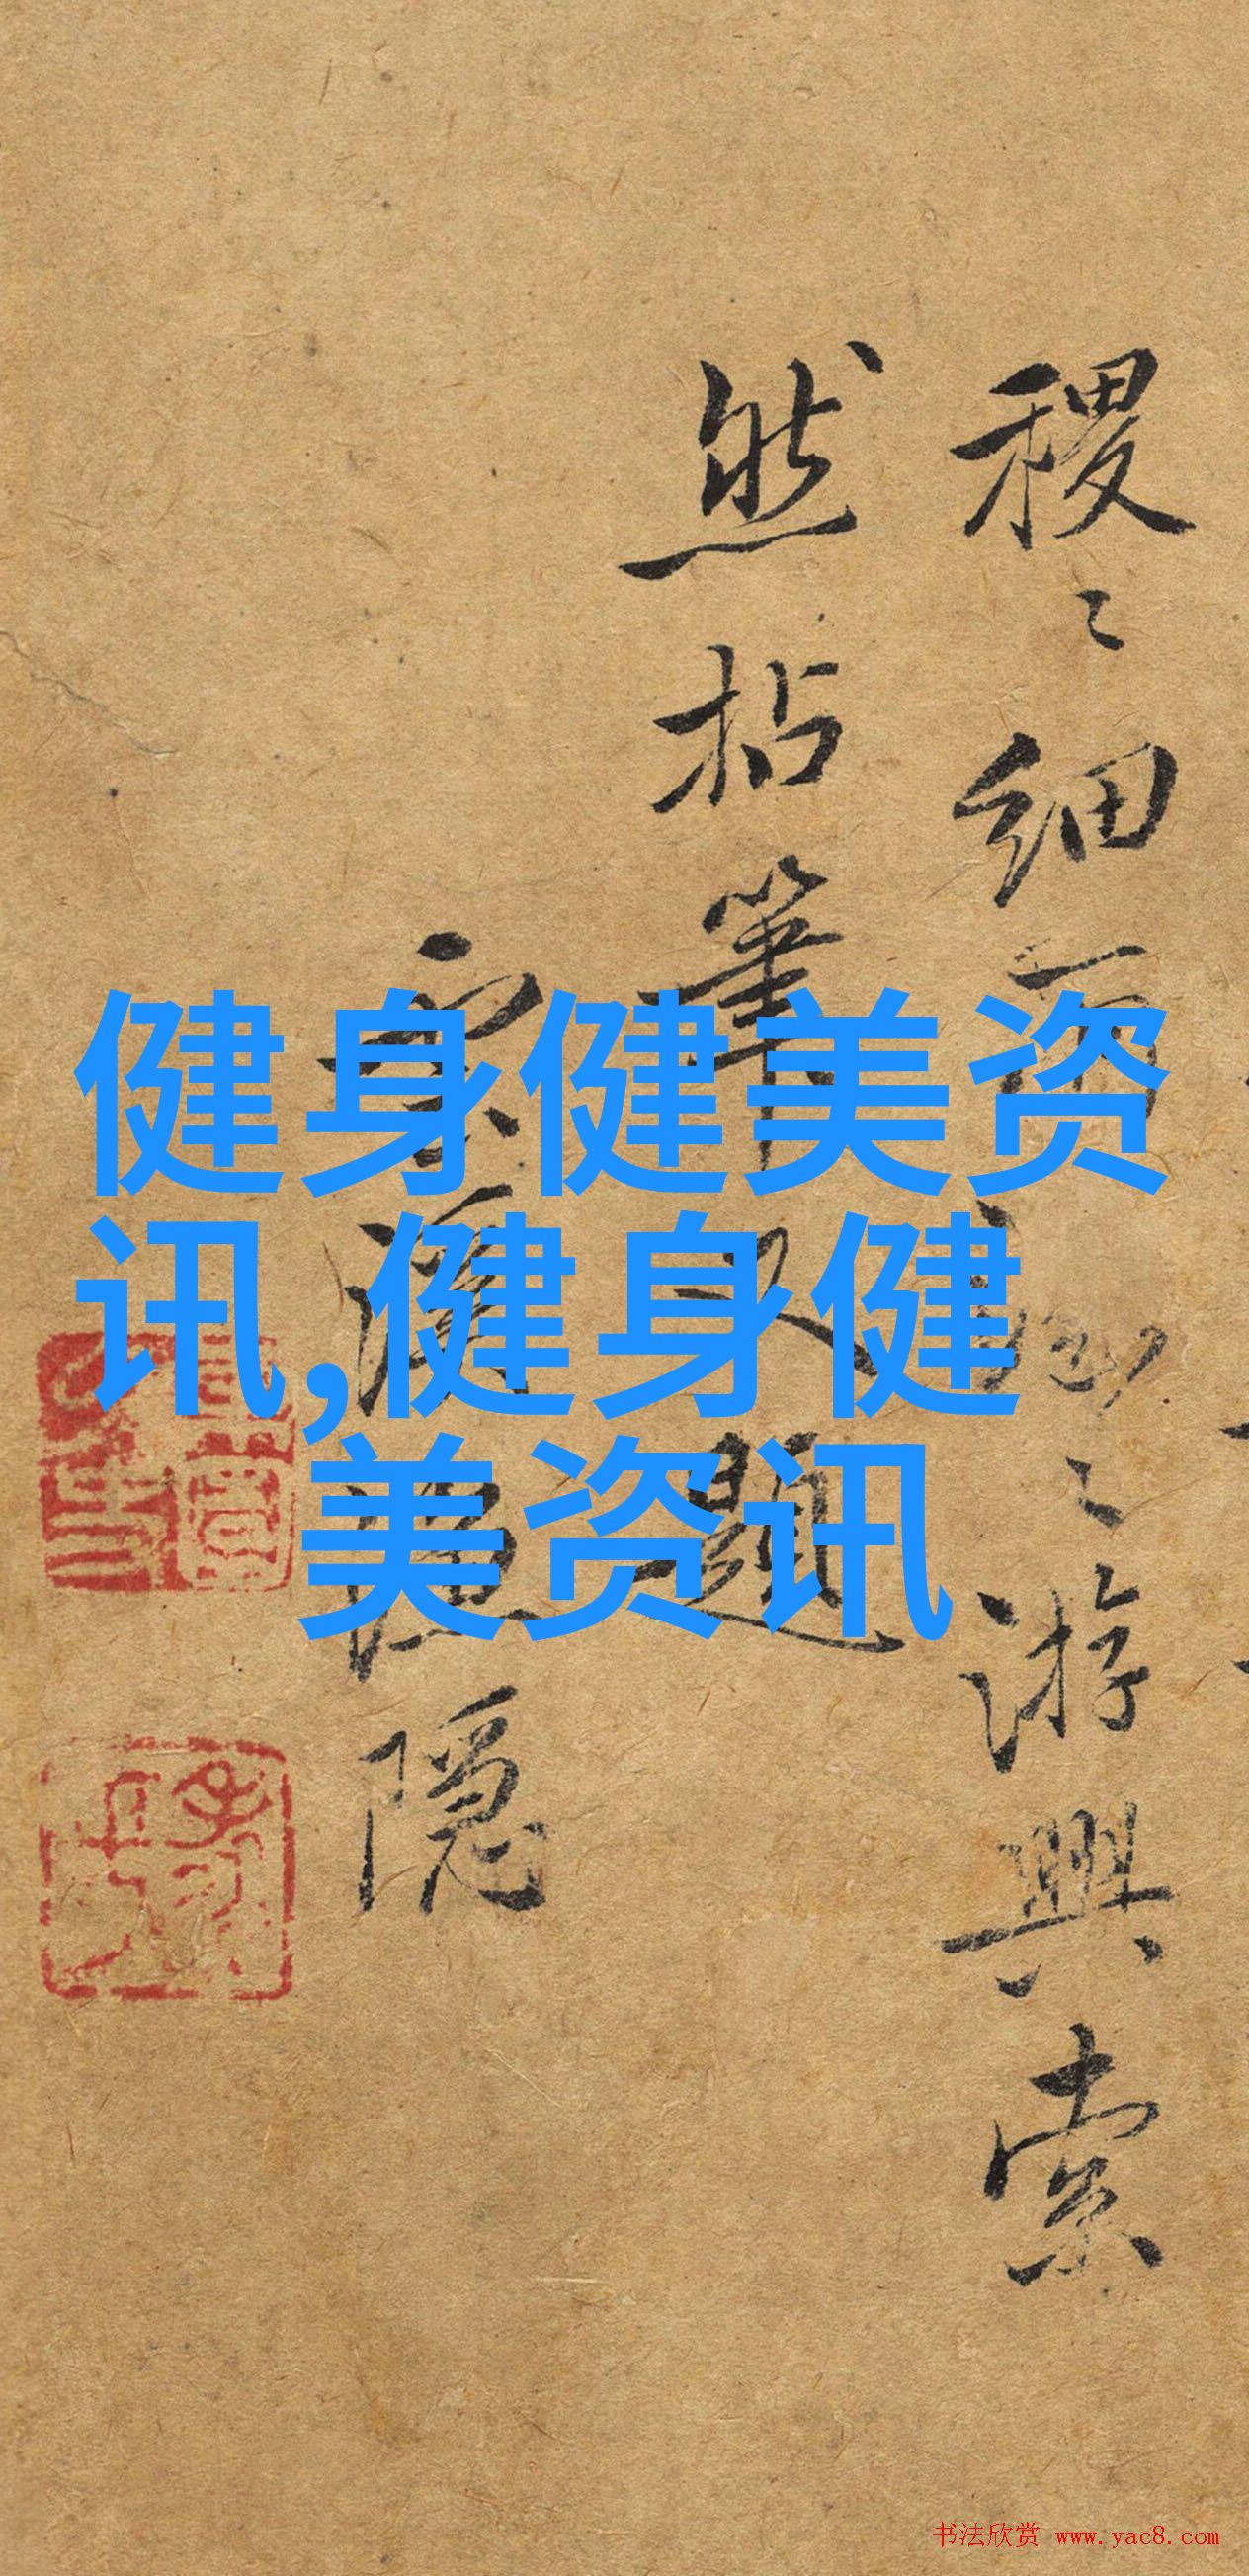 稷〻細
〻游興索
然拈筆又題
玄漢
隱
健身健美资
讯,健身健
美资讯
书法欣赏 www.yac8.com